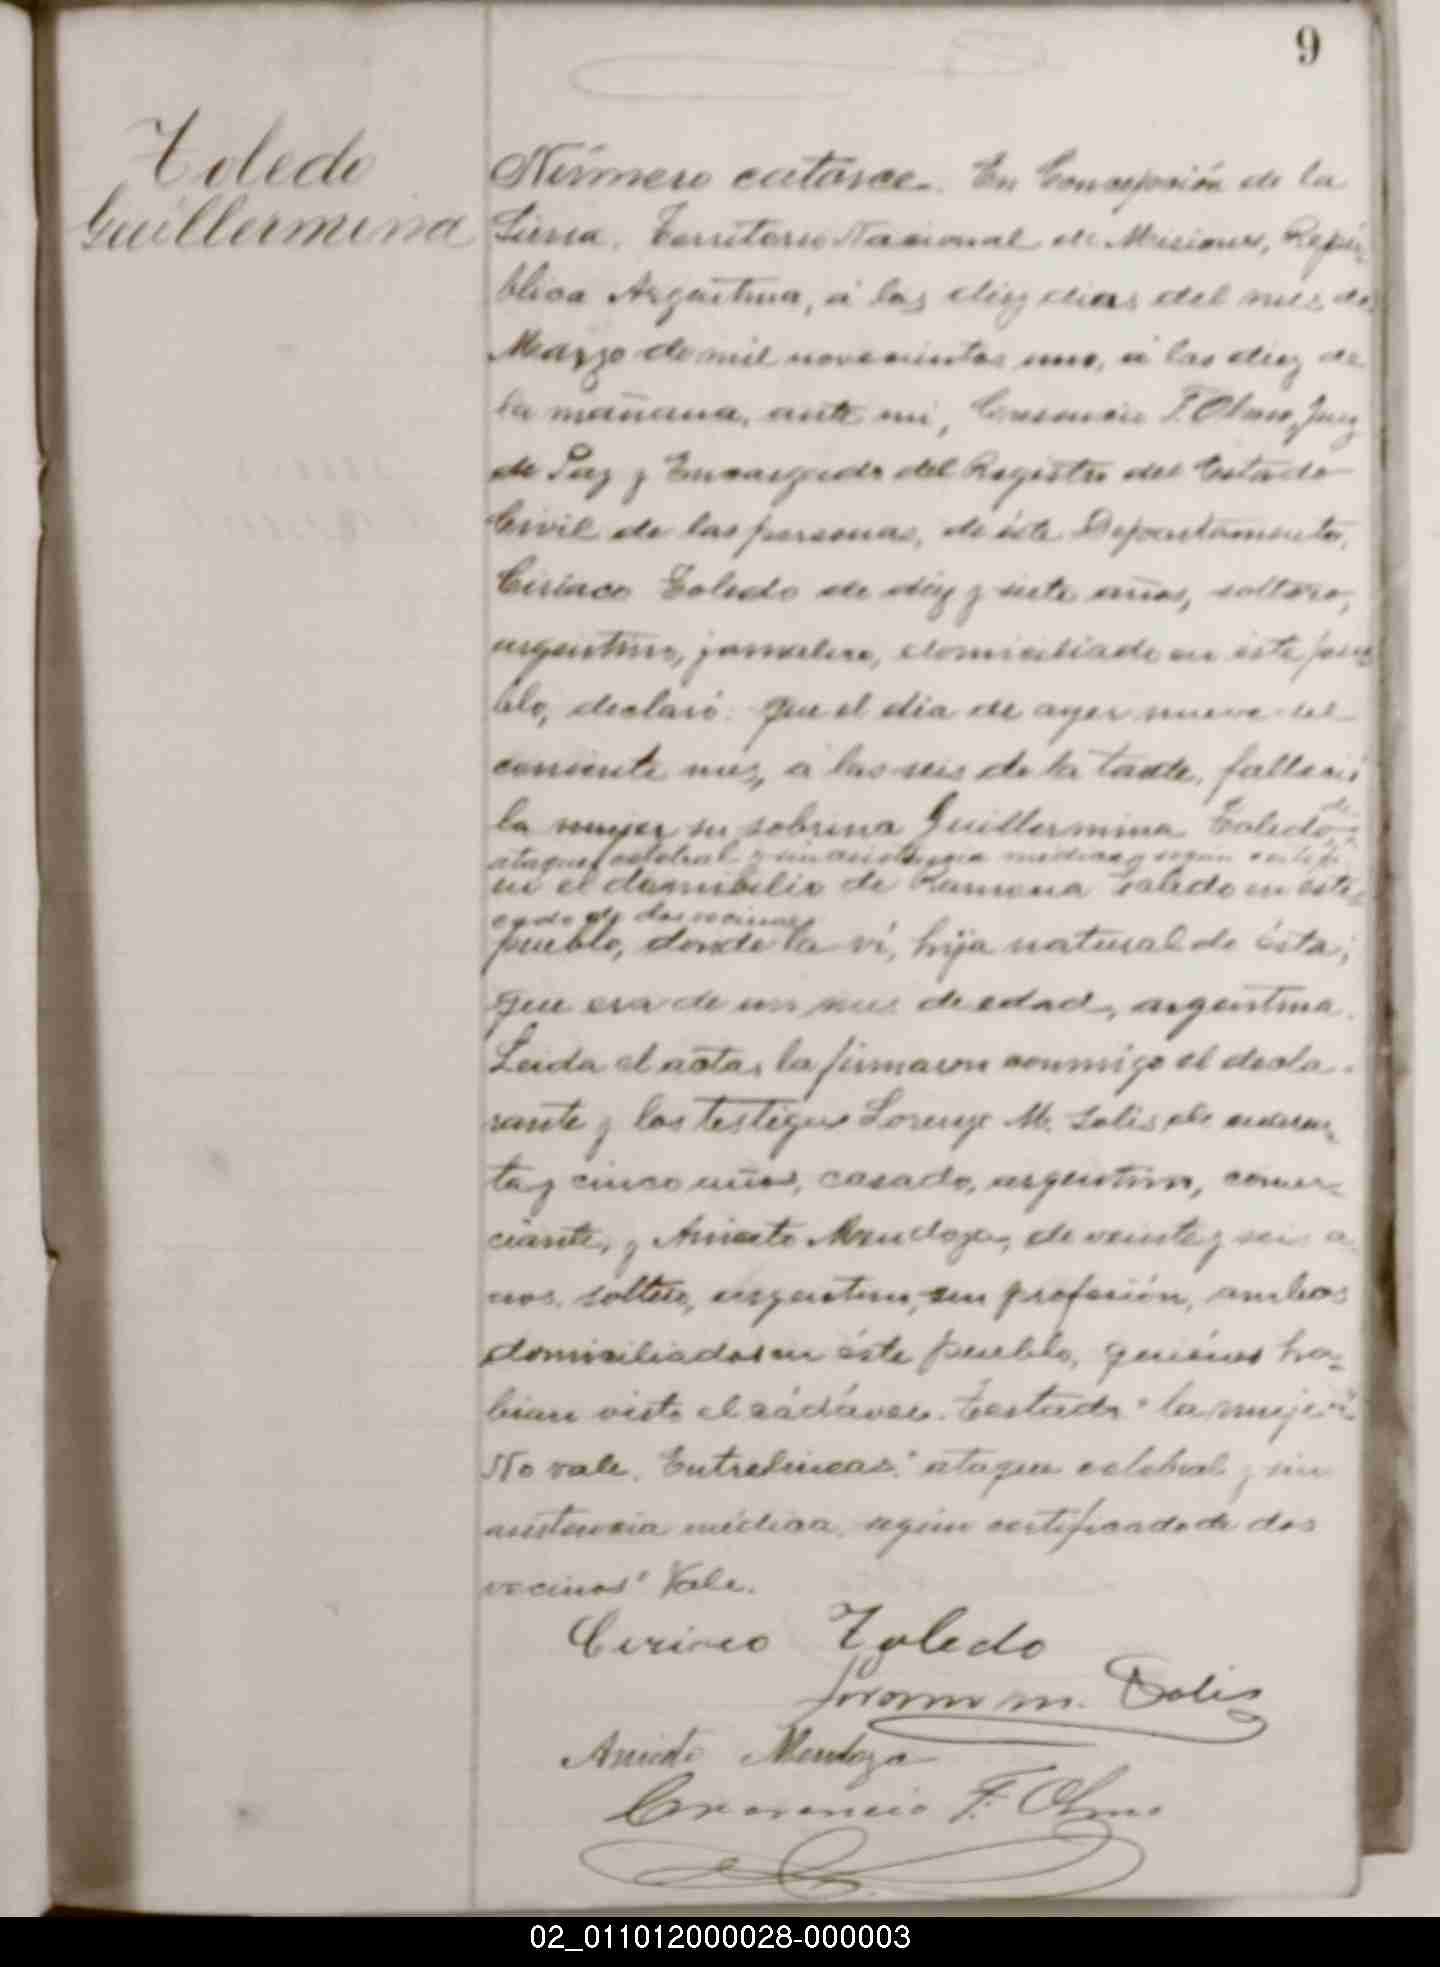 9
Toledo
Guillermina
Número catorce. En Concepción de la
Sierra, Territorio Nacional de Misiones, Repú-
blica Argentina, á los diez dias del mes de
Marzo de mil novecientos uno, á las diez de
la mañana, ante mi, Cresencio F. Olmo, Juez
de Paz y Encargado del Registro del Estado
Civil de las personas, de éste Departamento,
Ciriaco Toledo de diez y siete años, soltero,
argentino, jornalero, domiciliado en éste pue-
blo, declaró: que el dia de ayer nueve del
corriente mes, á las seis de la tarde, falleció
la mujer su sobrina Guillermina Toledo de
ataque celebral y sin asistencia médica, según certifi-
en el domicilio de Ramona Toledo en este
cado de dos vecinos
pueblo, donde la ví, hija natural de ésta;
que era de un mes de edad, argentina.
Leida el acta, la firmaron conmigo el decla-
rante y los testigos Lorenzo M. Solis de cuaren-
ta y cinco años, casado, argentino, comer-
ciante, y Aniceto Mendoza, de veinte y seis a-
ños, soltero, argentino, sin profesión, ambos
domiciliados en éste pueblo, quiénes ha-
bian visto el cádáver. Testado "la mujer"
No vale. Entrelineas: "ataque celebral y sin
asistencia médica, según certificado de dos
vecinos" Vale.
Ciriaco Toledo
Lorenzo M. Solis
Aniceto Mendoza
Cresencio F. Olmo
02_011012000028-000003